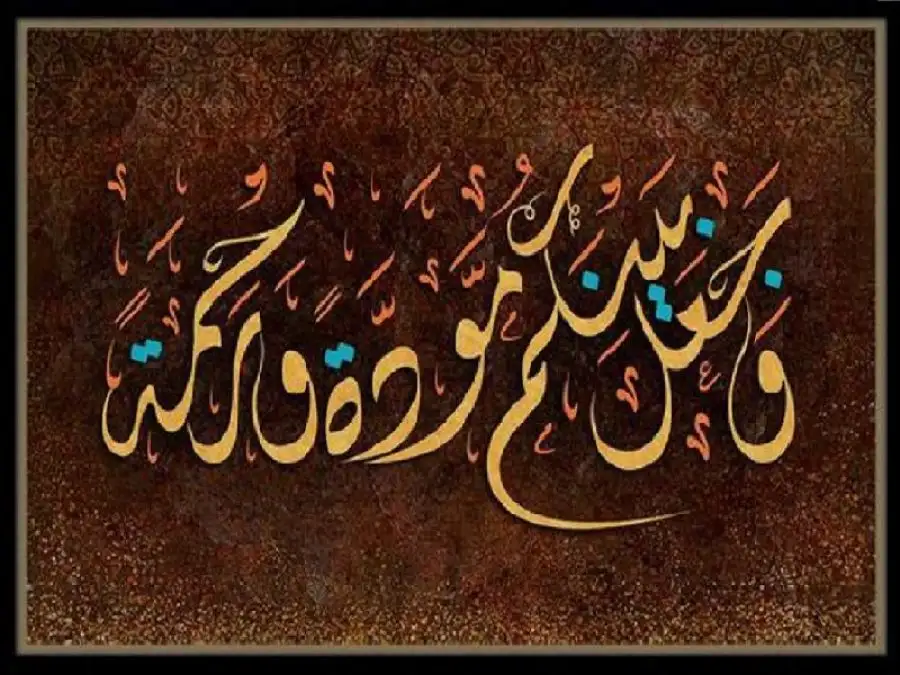 وَجَعَلَ بَيْنَكُم مَّوَدَّةً وَرَحْمَةً